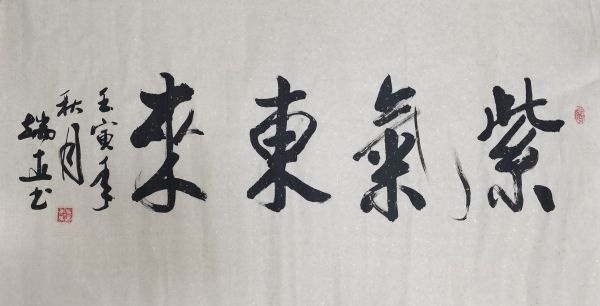 紫氣東來
壬寅年
秋月
瑞直书